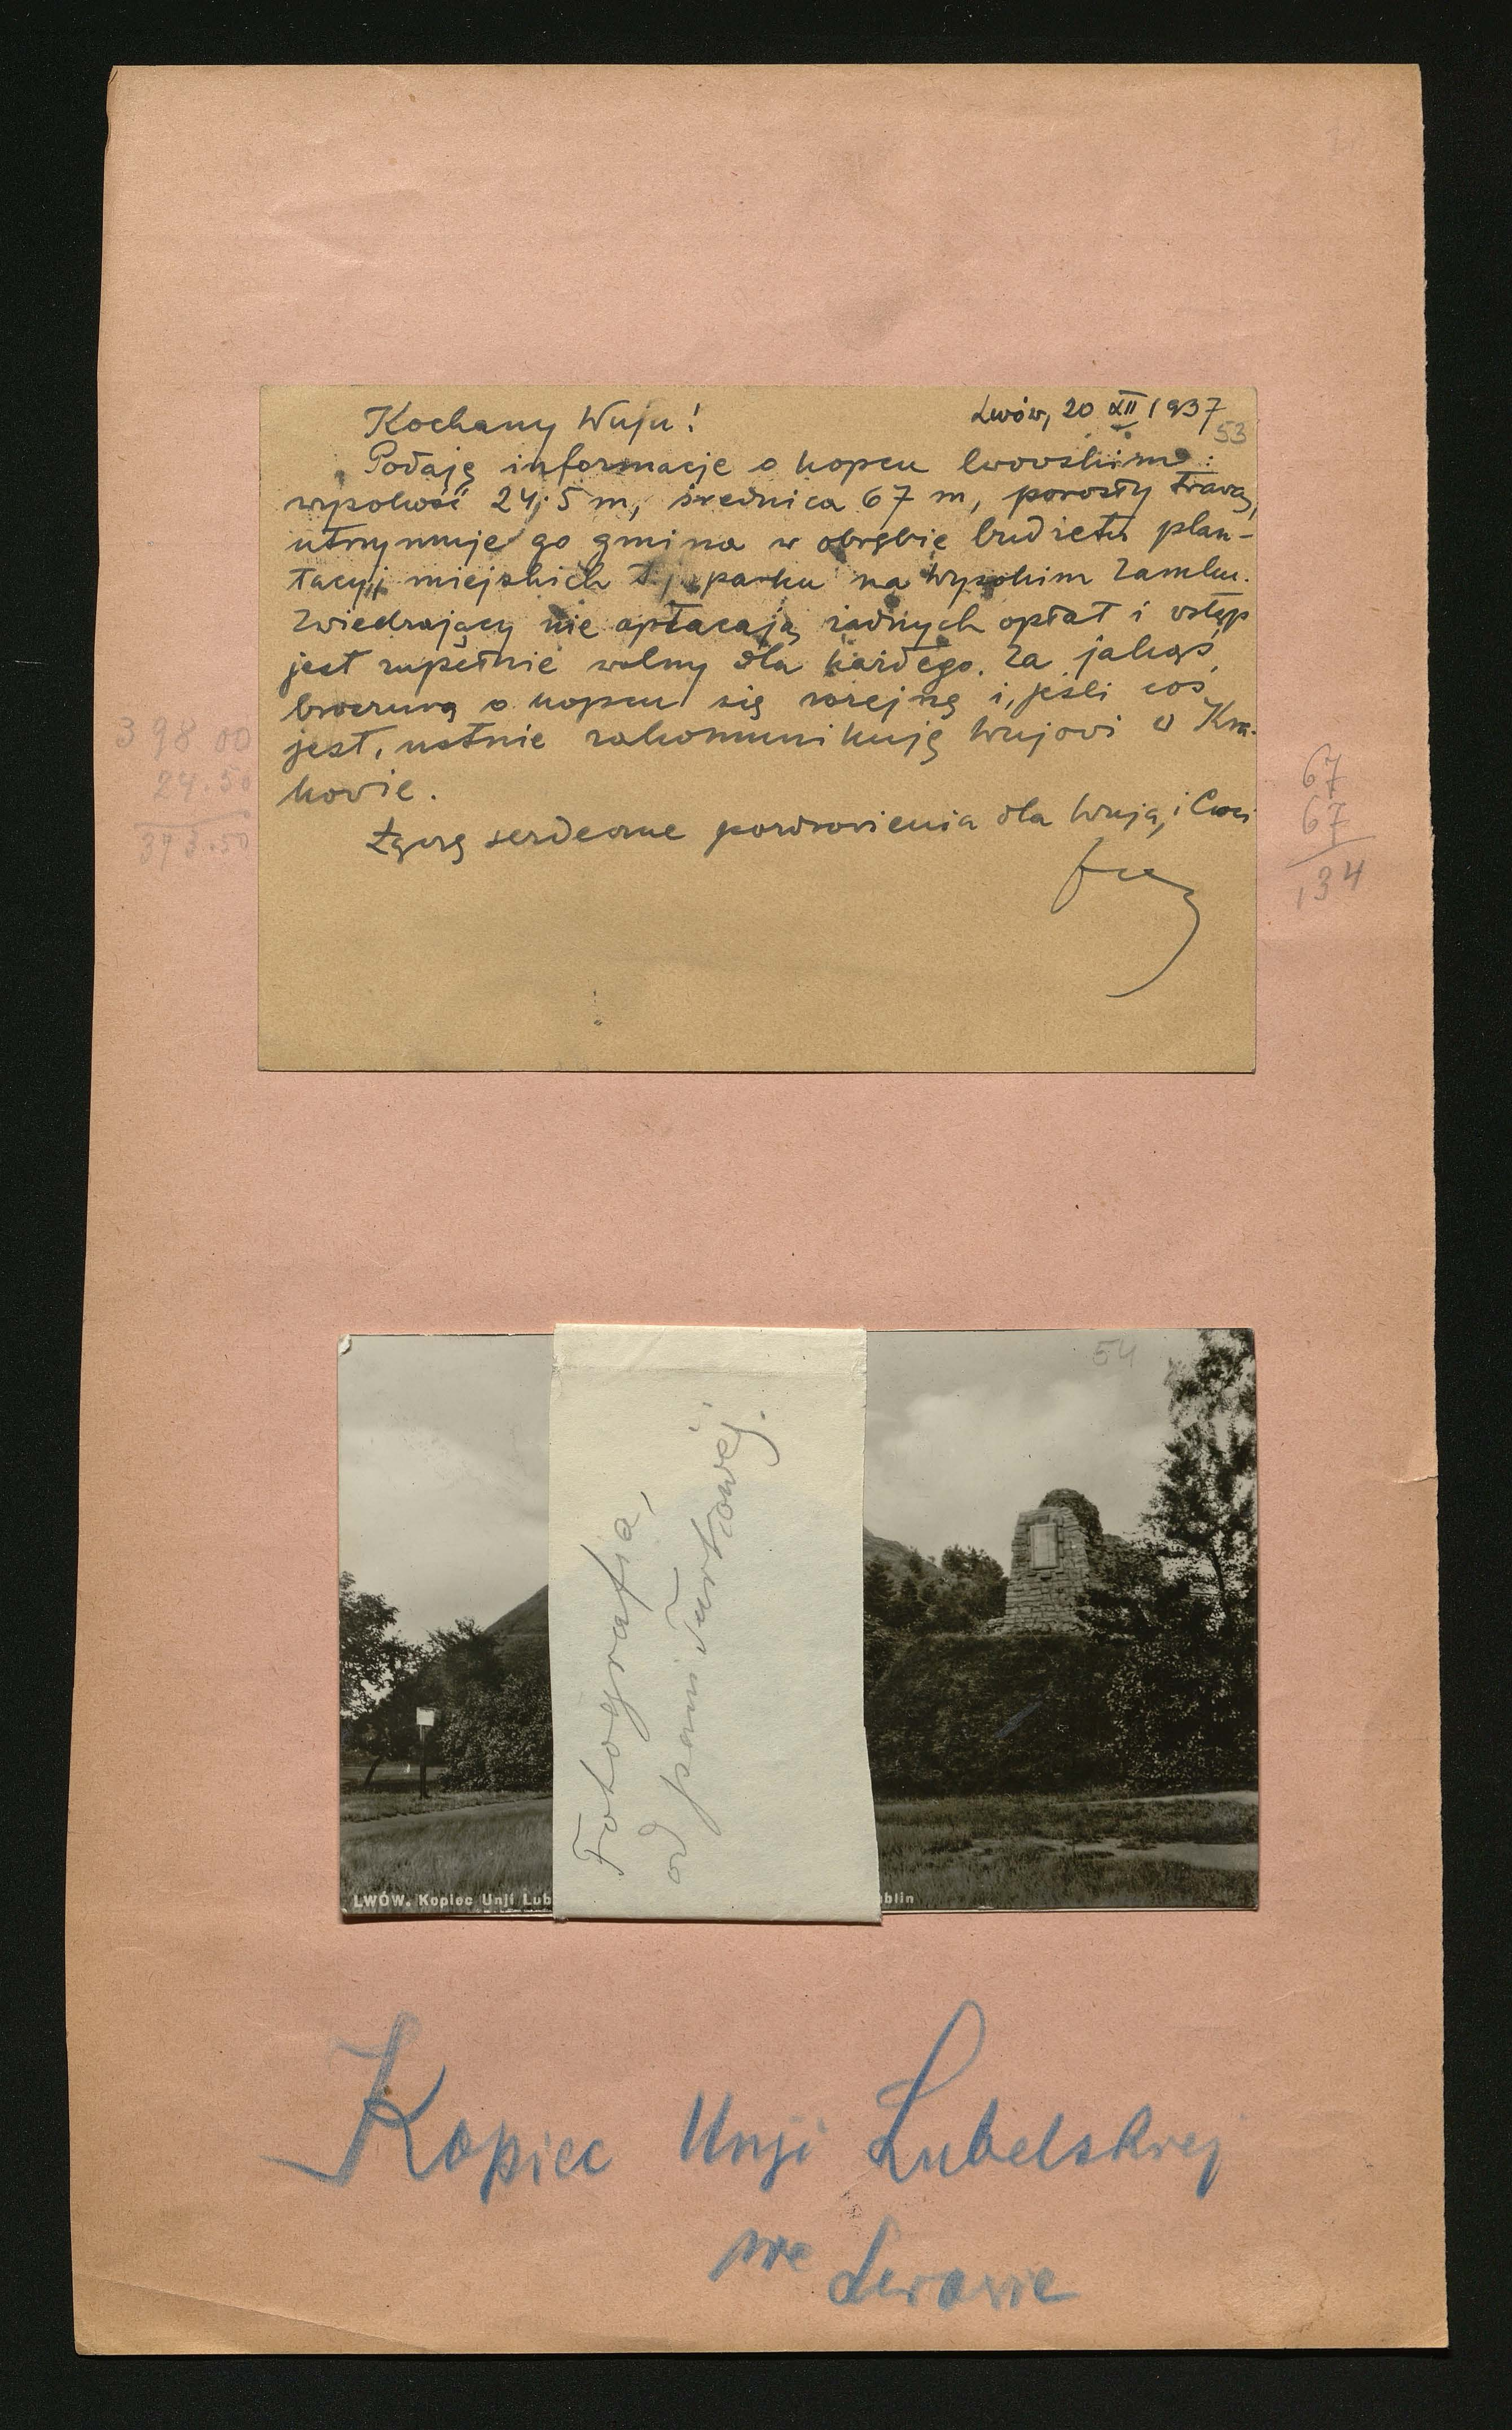 Kochany Wuju!
Lwów, 20 XII 1937
53
Podaję informacje o kopcu lwowskim:
wysokość 24,5 m, średnica 67 m, porosły trawą,
utrzymuje go gmina w obrębie budżetu plan-
tacyj miejskich t.j. parku na Wysokim Zamku.
Zwiedzający nie opłacają żadnych opłat i wstęp
jest zupełnie wolny dla każdego. Za jakąś
broszurą o kopcu się rozejrzę i, jeśli coś
jest, ustnie zakomunikuję Wujowi w Kra-
kowie.
Łączę serdeczne pozdrowienia dla Wuja i Cioci
398 00
24.50
373.50
67
67
134
54
Fotografia,
od pani Turkowej.
LWÓW. Kopiec Unji Lub
blin
Kopiec Unji Lubelskiej
we Lwowie